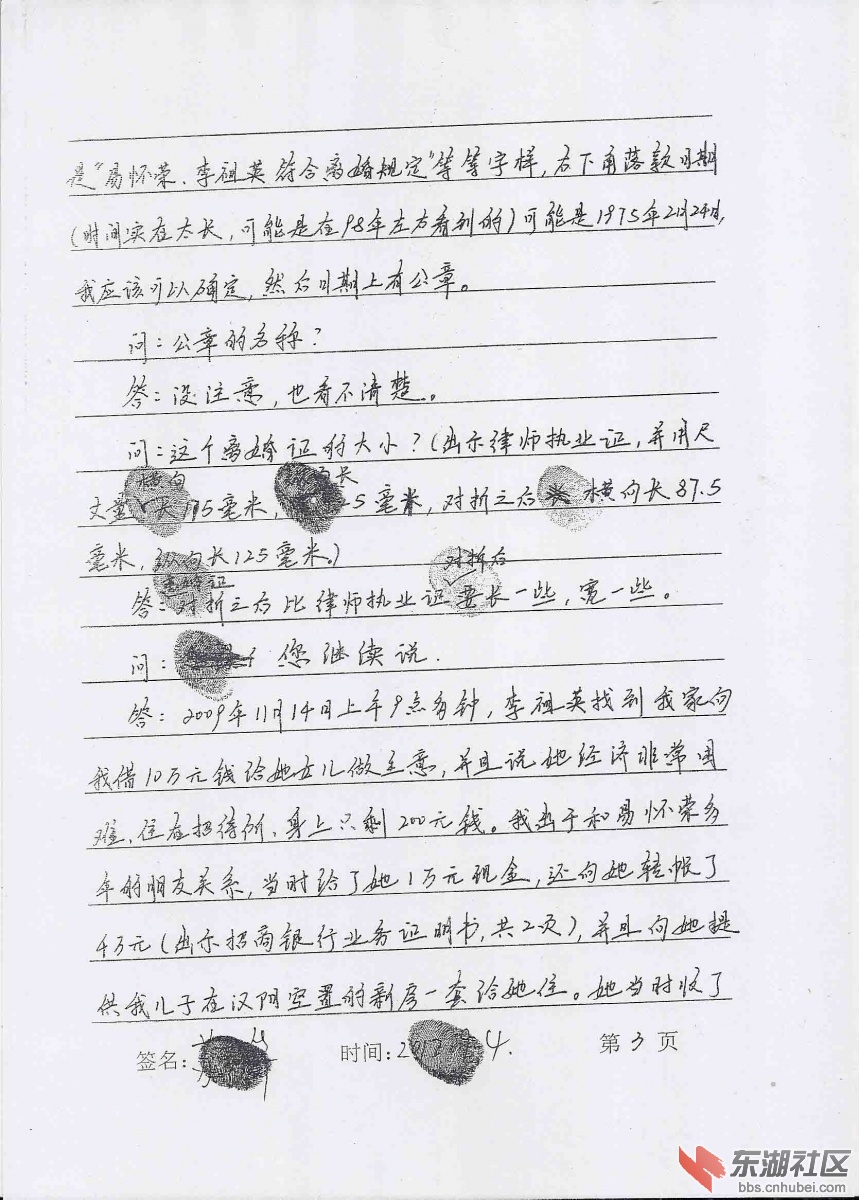 是“易怀荣、李祖英符合离婚规定”等等字样,右下角落款日期
(时间实在太长,可能是在98年左右看到的)可能是1975年2月24日,
我应该可以确定,然后日期上有公章。
问:公章的名称?
答:没注意,也看不清楚。
问:这个离婚证的大小?(出示律师执业证,并用尺
横向
丈量 长175毫米, 长 25毫米,对折之后 横向长87.5
毫米,纵向长125毫米。)
离婚证 对折后
答:对折之后比律师执业证要长一些,宽一些。
问: 您继续说.
答:2009年11月14日上午9点多钟,李祖英找到我家向
我借10万元钱给她女儿做生意,并且说她经济非常困
难,住在招待所,身上只剩200元钱。我出于和易怀荣多
年的朋友关系,当时给了她1万元现金,还向她转帐了
4万元(出示招商银行业务证明书,共2页),并且向她提
供我儿子在汉阳空置的新房一套给她住。她当时收了
签名: 时间:2012 4. 第3页
东湖社区
bbs.cnhubei.com